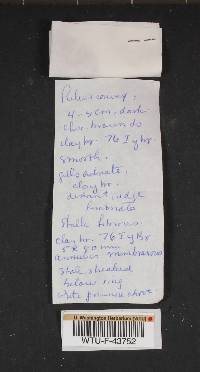 Pileus convex,
4-5 cm. dark
clay br. 76 I y br
smooth.
gills adnate,
clay br.
distant, edge
fimbriate
Stalk fibrous
clay br. 76 I y Br
5 x 90 mm
annulus membranous
Stalk sheathed
below ring
white pruinose above
U. Washington Herbarium (WTU)
WTU-F-43752